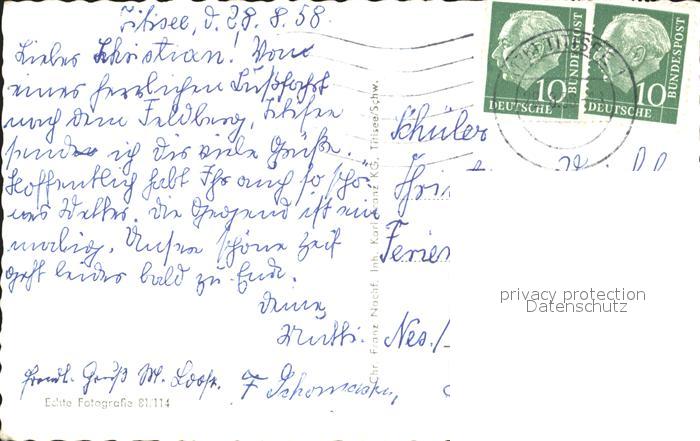 Titisee, d. 28. 8. 58.
Liebes Christian! Von
einer herrlichen Luftfahrt
nach dem Feldberg, Titisee
sende ich dir viele Grüße.
Hoffentlich habt Ihr auch so schö-
nes Wetter. Die Gegend ist ein
malig. Unsere schöne Zeit
geht leider bald zu Ende.
Deine
Mutti.
freundl. Gruß M. Loose.
Echte Fotografie 81/114
Chr. Franz Nachf. Inh. Karl Franz KG, Titisee/Schw.
10
DEUTSCHE
BUNDESPOST
10
DEUTSCHE
BUNDESPOST
Schüler
Ferien
privacy protection
Datenschutz